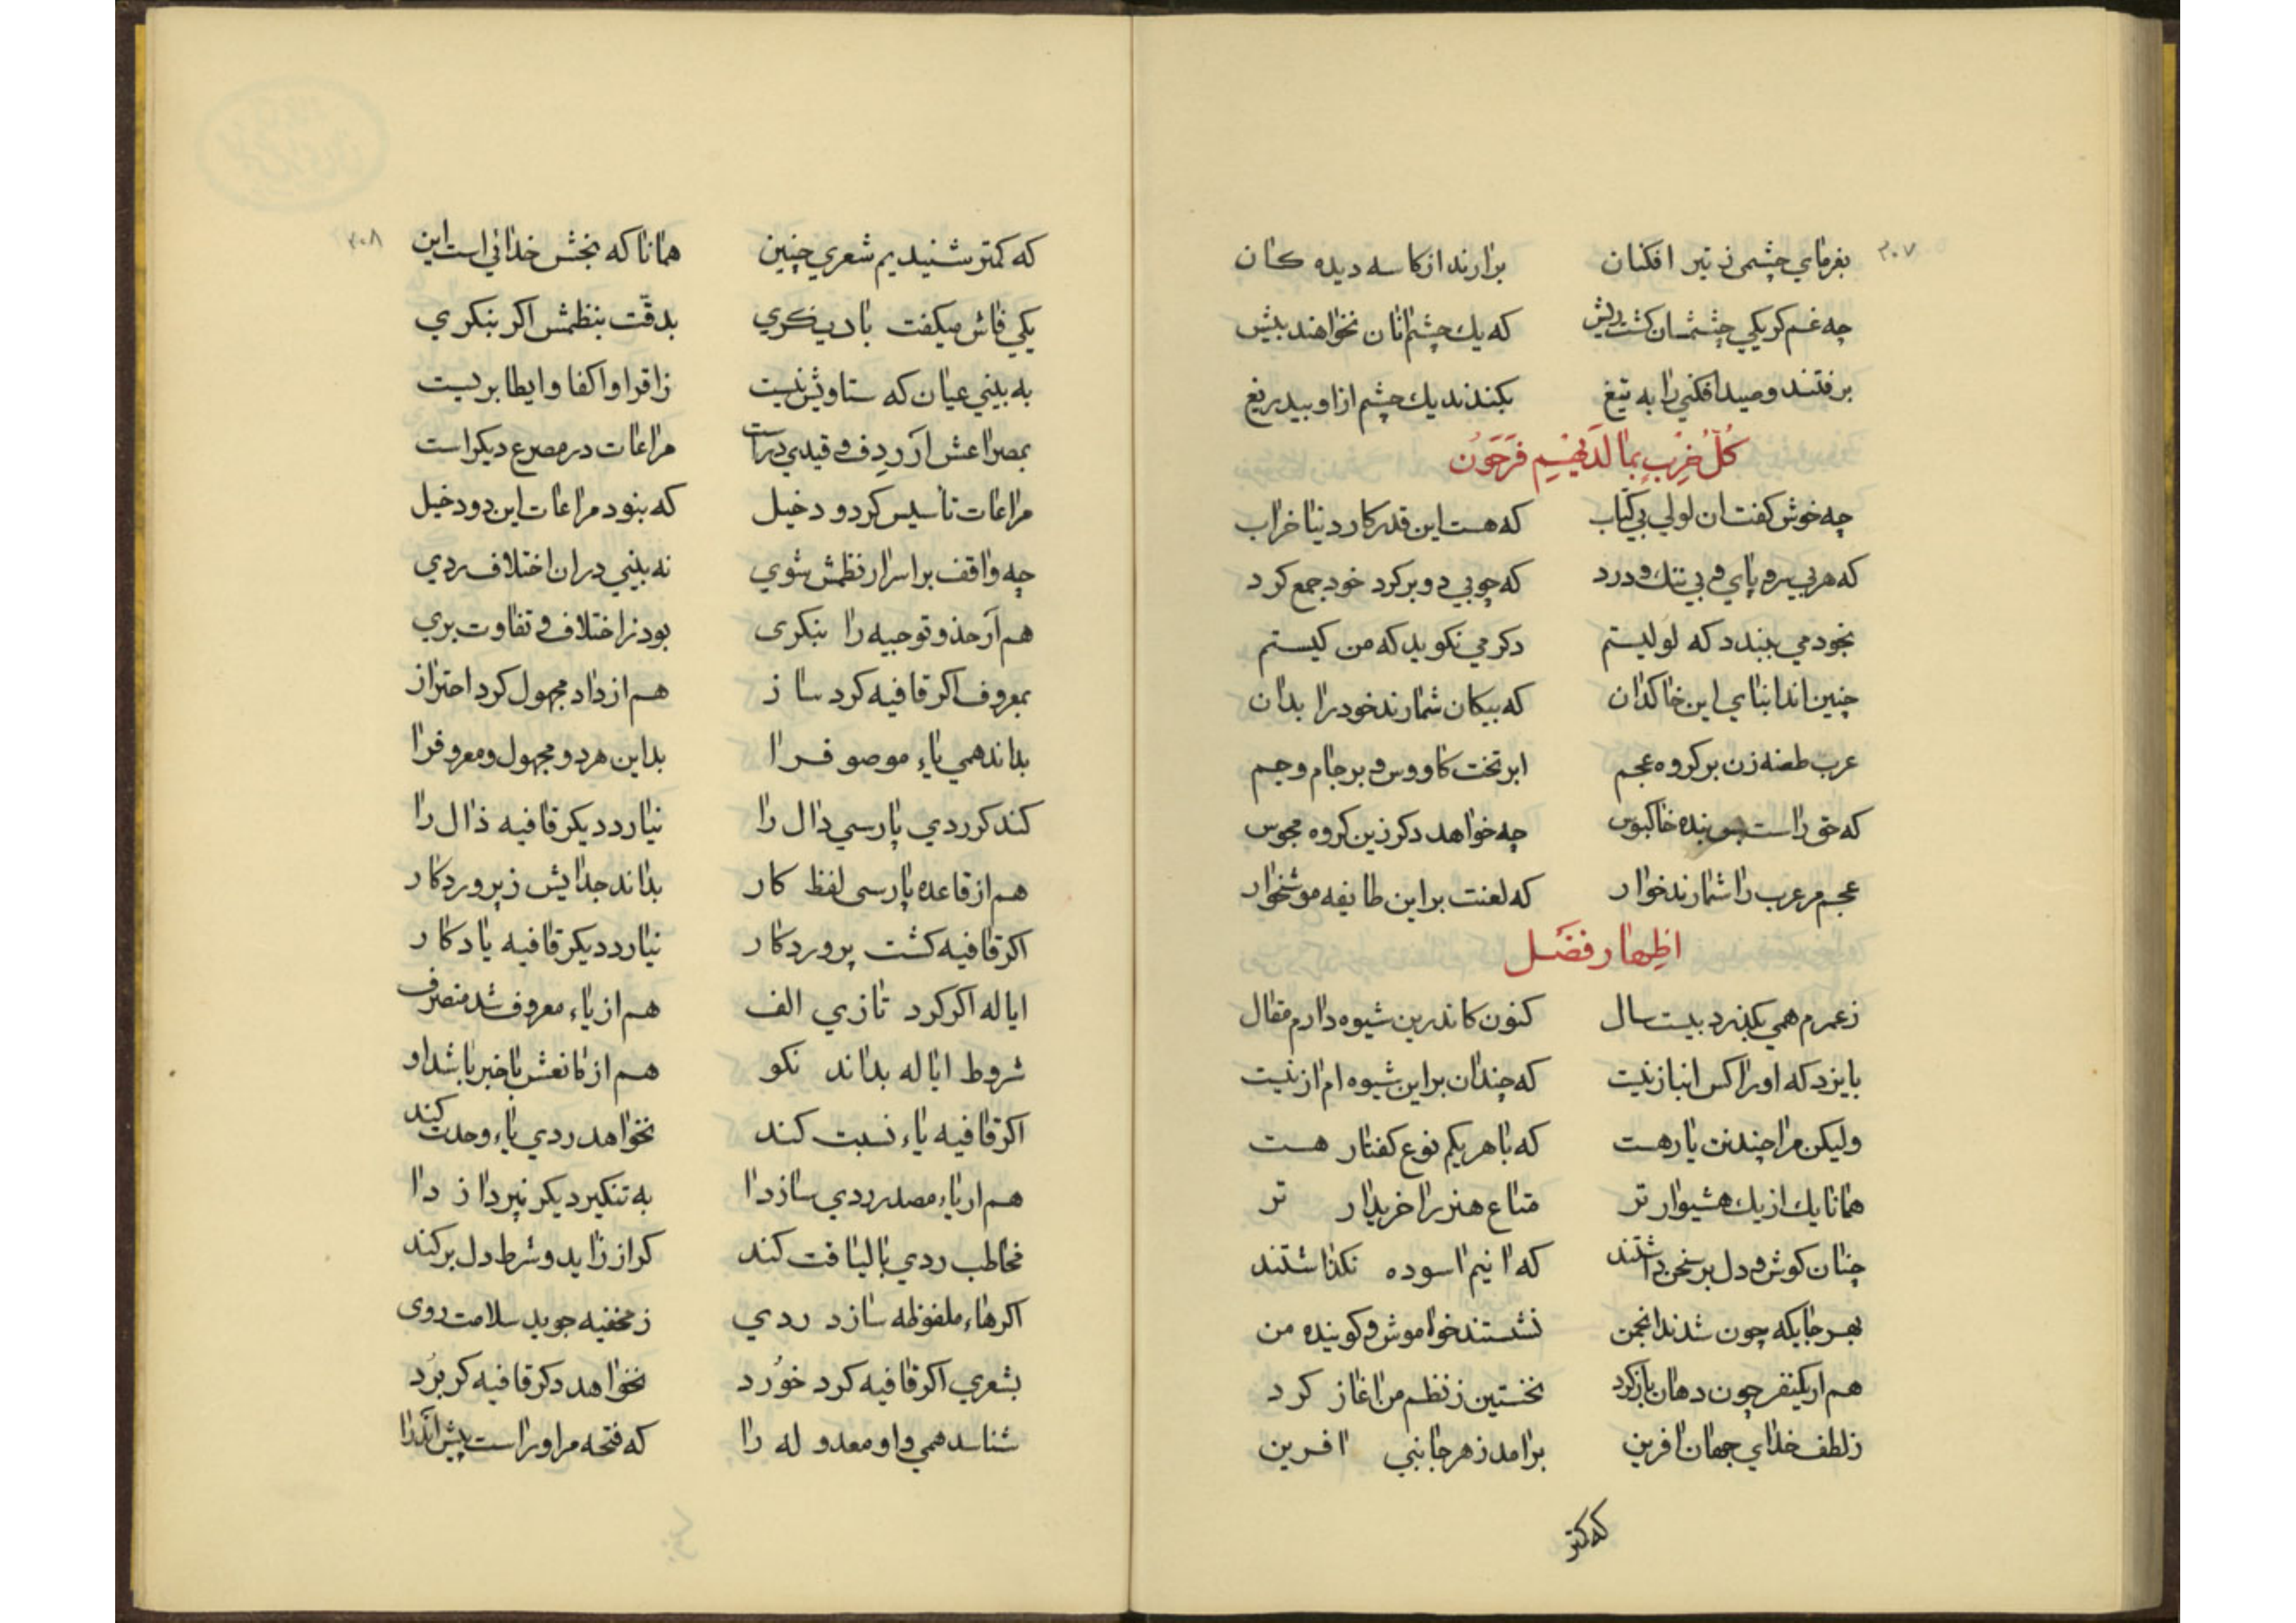 ۳۰۷
بفرمای چشمی ز تیر افکنان برارند از کاسه دیده کان
چه غم کر یکی چشمشان کشت ریش که یك چشم انان نخواهند بیش
برفتند و صید افکنی را به تیغ بکندند یك چشم ازاو بیدریغ
كُلُّ حِزْبٍ بِمَا لَدَيْهِمْ فَرِحُونَ
چه خوش کفت ان لولی بی کتاب که هست این قدر کار دنیا خراب
که هر بی سر و پای و بی ننك و درد که چوبی دو بر کرد خود جمع کرد
بخود می ببندد که لولیستم دکر می نکوید که من کیستم
چنین اند ابنای این خاکدان که بیکان شمارند خود را بدان
عرب طعنه زن بر کروه عجم ابر تخت کاووس و بر جام و جم
که حق راست بنده خاکبوس چه خواهد دکر زین کروه مجوس
عجم مر عرب را شمارند خوار که لعنت بر این طایفه موشخوار
اظهار فضل
ز عمرم همی بکذرد بیست سال کنون کاندرین شیوه دارم مقال
بایزد که او را کس انباز نیست که چندان براین شیوه ام از نیست
ولیکن مرا چند تن یار هست که با هر یکم نوع کفتار هست
همانا یك از یك هشیوار تر متاع هنر را خریدار تر
چنان کوش و دل بر سخن داشتند که انیم اسوده نکذاشتند
بهر جایکه چون شدند انجمن نشستند خواموش و کوینده من
هم ار یکنفر چون دهان باز کرد نخستین ز نظم من اغاز کرد
ز لطف خدای جهان افرین برامد ز هر جانبی افرین
که کمتر
۳۰۸
که کمتر شنیدیم شعری چنین همانا که بخش خدائی است این
یکی فاش میکفت با دیکری بدقّت بنظمش اکر بنکری
به بینی عیان که سناویش نیست ز اقرا و اکفا و ایطا بریست
بمصراعش ار ردف و قیدی دراست مراعات در مصرع دیکر است
مراعات تأسیس کرد و دخیل که بنود مراعات این دو دخیل
چه واقف بر اسرار نظمش شوی نه بینی دران اختلاف ردی
هم ار حذو توجیه را بنکری بود ز اختلاف و تفاوت بری
بمعروف اکر قافیه کرد ساز هم از داد مجهول کرد احتراز
بداند همی یاء موصوف را بداین هر دو مجهول و معروف را
کند کر ردی پارسی دال را نیارد دیکر قافیه ذال را
هم از قاعده پارسی لفظ کار بداند جدایش ز پروردکار
اکر قافیه کشت پروردکار نیارد دیکر قافیه یادکار
اماله اکر کرد تازی الف هم از یاء معروف شد منصرف
شروط اماله بداند نکو هم از مانعش باخبر باشد او
اکر قافیه یاء نسبت کند نخواهد ردی یاء وحدت کند
هم ار یاء مصدر ردی سازدا به تنکیر دیکر نپردازدا
مخاطب ردی بالیاقت کند کر از زاید و شرط دل بر کند
اکر هاء ملفوظه سازد ردی ز مخفیه جوید سلامت روی
بشعری اکر قافیه کرد خوُرد نخواهد دکر قافیه کر بُرد
شناسد همی واو معدوله را که فتحه مر او راست پیش اندرا